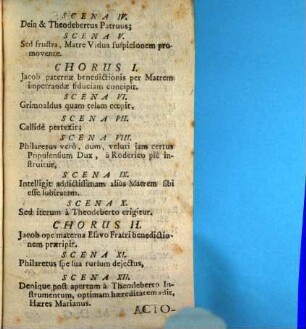 SCENA IV.
Dein & Theodebertus Patruus;
SCENA V.
Sed frustra, Matre Vidua suspicionem pro-
movente.
CHORUS I.
Jacob paternæ benedictionis per Matrem
impetrandæ fiduciam concipit.
SCENA VI.
Grimoaldus quam telam cœpit,
SCENA VII.
Callidè pertexit;
SCENA VIII.
Philaretus verò, dum, veluti jam certus
Populensium Dux, à Roderico piè in-
struitur,
SCENA IX.
Intelligit addictissimam aliàs Matrem sibi
esse
SCENA X.
Sed iterum à Theodeberto erigitur.
CHORUS II.
Jacob ope materna Esavo Fratri benedictio-
nem præripit.
SCENA XI.
Philaretus spe sua rursum dejectus,
SCENA XII.
Denique post apertum à Theodeberto In-
strumentum, optimam hæreditatem adit,
Hæres Marianus.
ACTO-